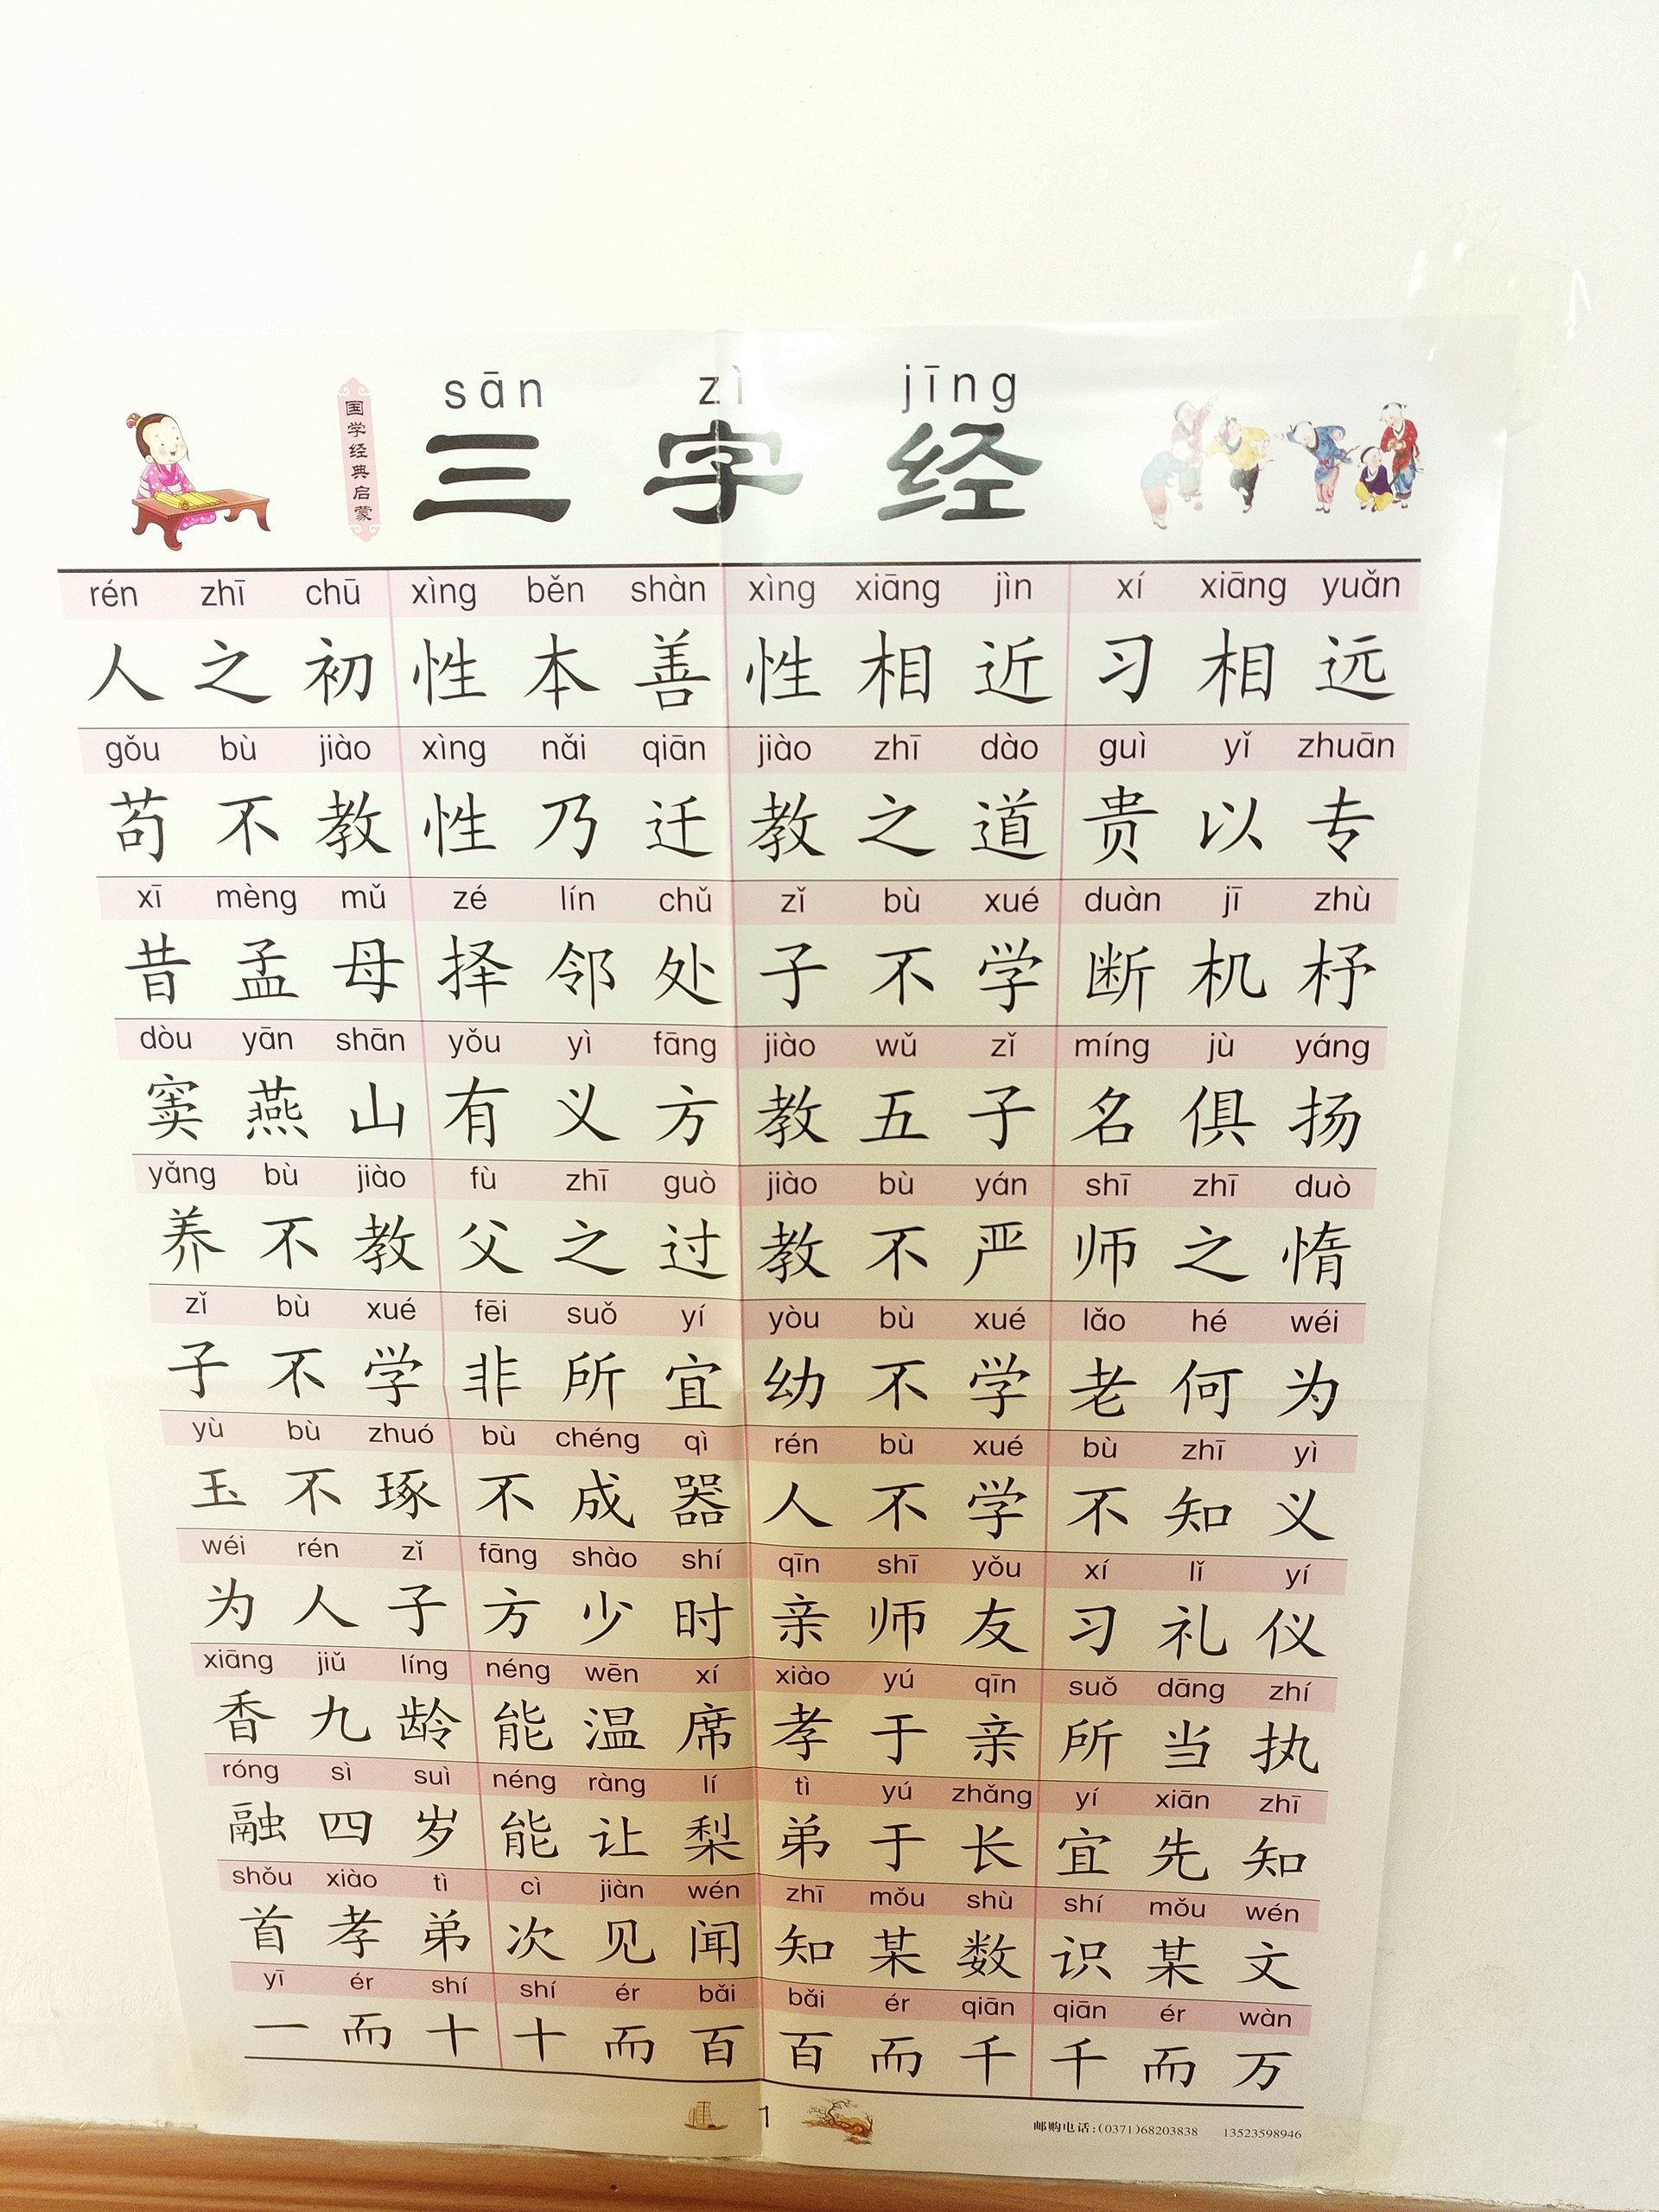 sān zì jīng
国学经典启蒙
三字经
rén zhī chū xìng běn shàn xìng xiāng jìn xí xiāng yuǎn
人之初 性本善 性相近 习相远
gǒu bù jiào xìng nǎi qiān jiào zhī dào guì yǐ zhuān
苟不教 性乃迁 教之道 贵以专
xī mèng mǔ zé lín chǔ zǐ bù xué duàn jī zhù
昔孟母 择邻处 子不学 断机杼
dòu yān shān yǒu yì fāng jiào wǔ zǐ míng jù yáng
窦燕山 有义方 教五子 名俱扬
yǎng bù jiào fù zhī guò jiào bù yán shī zhī duò
养不教 父之过 教不严 师之惰
zǐ bù xué fēi suǒ yí yòu bù xué lǎo hé wéi
子不学 非所宜 幼不学 老何为
yù bù zhuó bù chéng qì rén bù xué bù zhī yì
玉不琢 不成器 人不学 不知义
wéi rén zǐ fāng shào shí qīn shī yǒu xí lǐ yí
为人子 方少时 亲师友 习礼仪
xiāng jiǔ líng néng wēn xí xiào yú qīn suǒ dāng zhí
香九龄 能温席 孝于亲 所当执
róng sì suì néng ràng lí tì yú zhǎng yí xiān zhī
融四岁 能让梨 弟于长 宜先知
shǒu xiào tì cì jiàn wén zhī mǒu shù shí mǒu wén
首孝弟 次见闻 知某数 识某文
yī ér shí shí ér bǎi bǎi ér qiān qiān ér wàn
一而十 十而百 百而千 千而万
1
邮购电话:(0371)68203838 13523598946